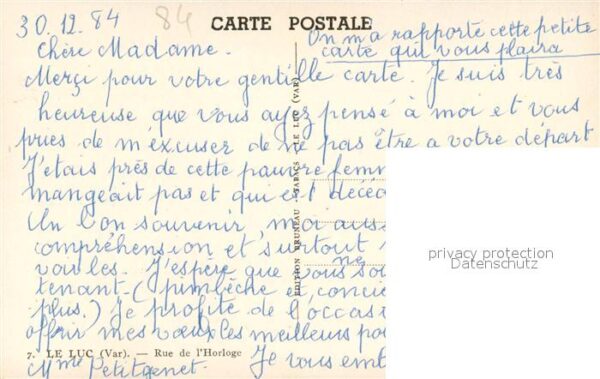 30.12.84
84
CARTE POSTALE
On m'a rapporté cette petite
carte qui vous plaira
Chère Madame.
Merçi pour votre gentille carte. Je suis très
heureuse que vous ayez pensé à moi et vous
pries de m'éxcuser de ne pas être a votre départ
J'étais près de cette pauvre femm
mangeait pas et qui est décéd
Un bon souvenir, moi auss
compréhension et surtout
voir les. J'espère que vous ne soi
tenant (pimbêche et concie
plus.) Je profite de l'occas
offrir mes vœux les meilleurs po
7. LE LUC (Var). — Rue de l'Horloge
Je vous emb
Mme Petitgenet.
EDITION BRUNEAU - TABACS - LE LUC (VAR)
privacy protection
Datenschutz